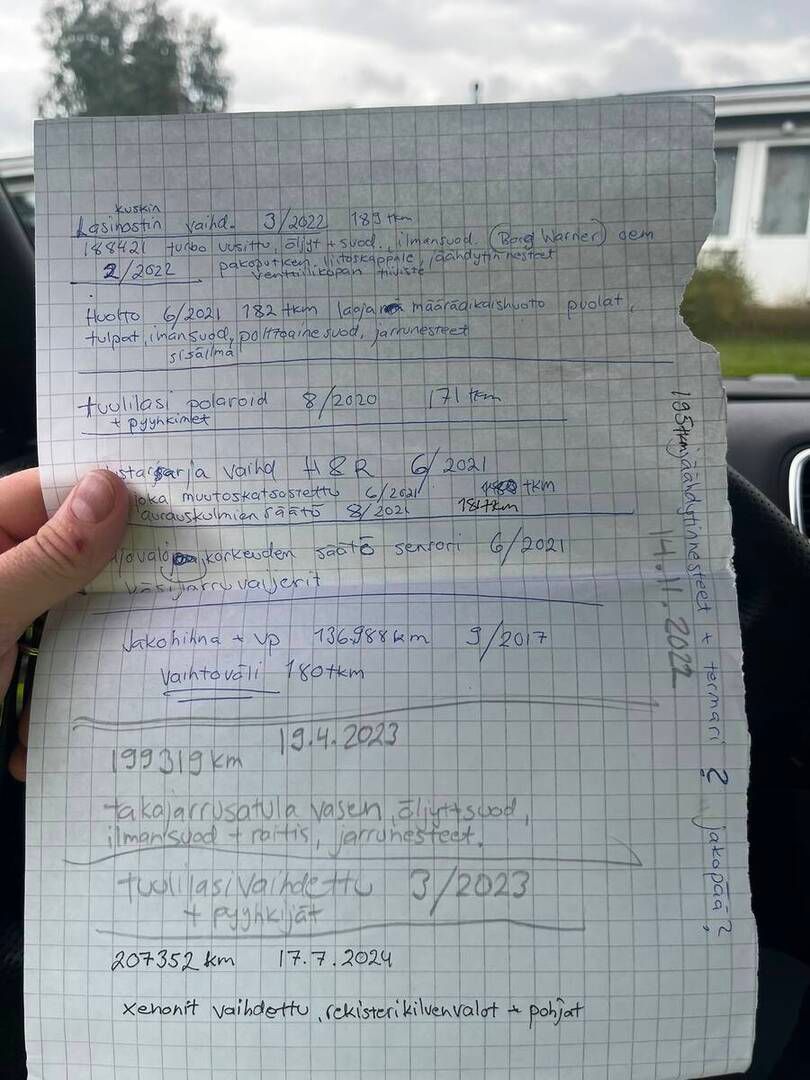 kuskin
Lasinostin vaihd. 3/2022 189 tkm
188421 turbo uusittu, öljyt + suod., ilmansuod. (Borg Warner) oem
2/2022 pakoputken liitoskappale, jäähdytinnesteet
venttiilikopan tiiviste
Huolto 6/2021 182 tkm laaja määräaikaishuolto puolat,
tulpat, ilmansuod, polttoainesuod, jarrunesteet
sisäilma
tuulilasi polaroid 8/2020 171 tkm
+ pyyhkimet
vaihd H&R 6/2021
joka muutoskatsastettu 6/2021 tkm
aurauskulmien säätö 8/2021 181 tkm
korkeuden säätö sensori 6/2021
käsijarruvaijerit
Jakohihna + vp 136.988 km 9/2017
vaihtoväli 180 tkm
199319 km 19.4.2023
takajarrusatula vasen, öljyt+suod,
ilmansuod + raitis, jarrunesteet.
tuulilasi vaihdettu 3/2023
+ pyyhkijät
207352 km 17.7.2024
xenonit vaihdettu, rekisterikilvenvalot + pohjat
195tkm jäähdytinnesteet + termari ? jakopää?,
14.11.2022